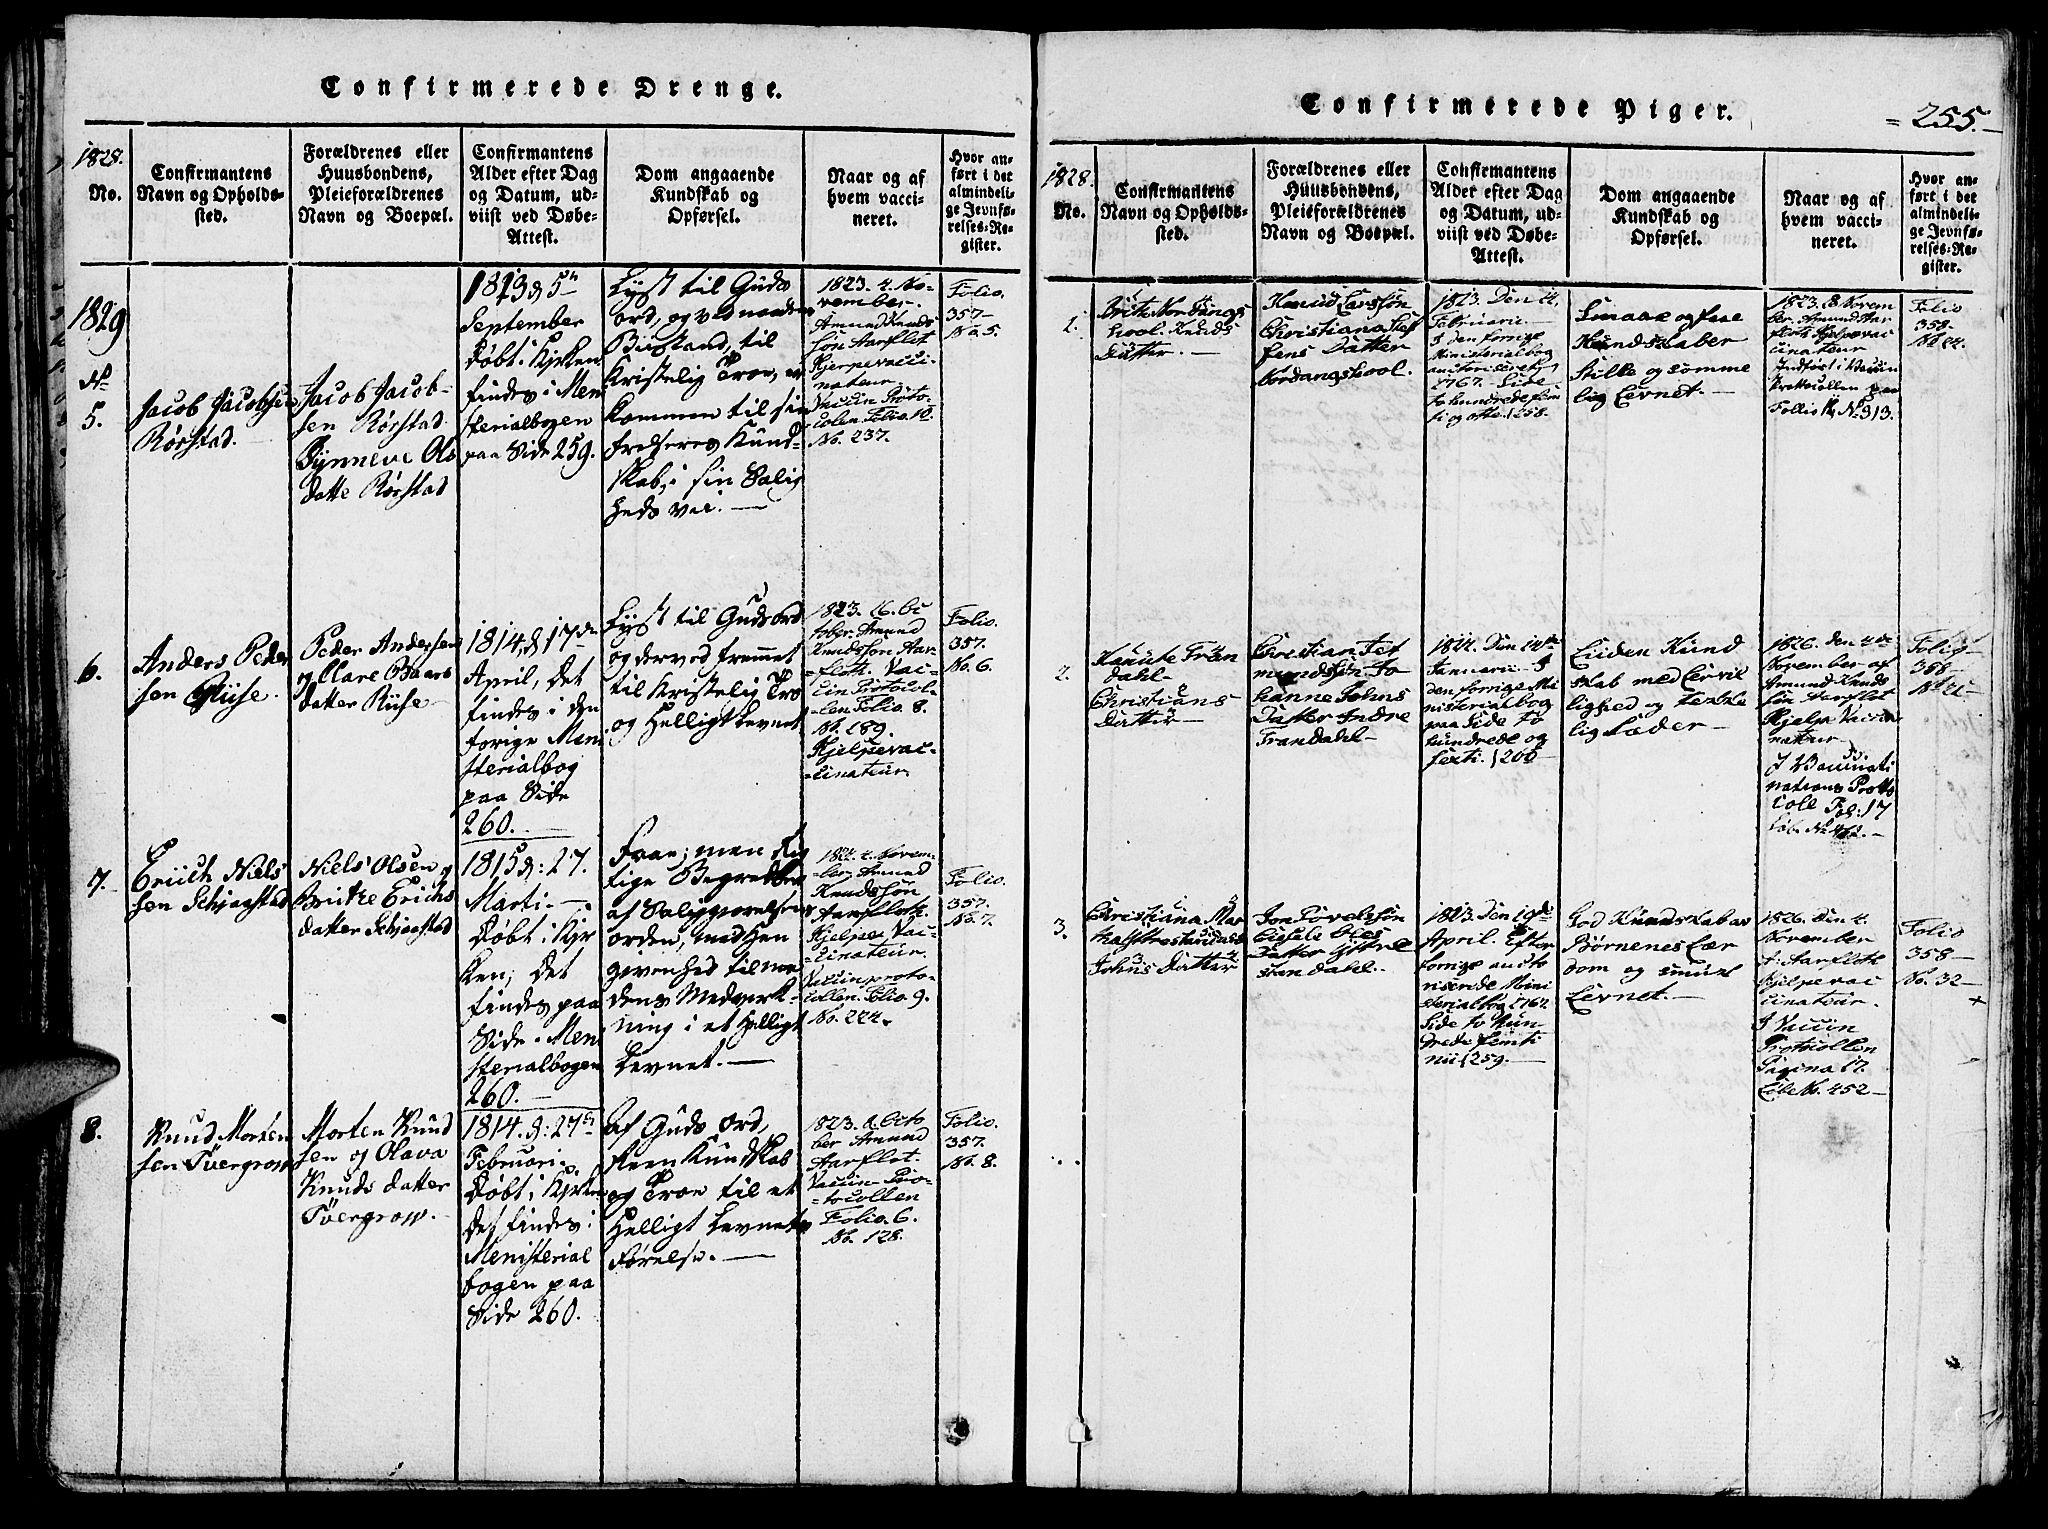 Confirmerede Drenge.
1828.
No.
Confirmantens
Navn og Opholds-
sted.
Forældrenes eller
Huusbondens,
Pleieforældrenes
Navn og Boepæl.
Confirmantens
Alder efter Dag
og Datum, ud-
viist ved Døbe-
Attest.
Dom angaaende
Kundskab og
Opførsel.
Naar og af
hvem vacci-
neret.
Hvor an-
ført i det
almindeli-
ge Jevnfø-
relses-Re-
gister.
1829
No
5.
Jacob Jacobsen
Rørstad.
Jacob Jacob-
sen Rørstad.
Synneve Ols
datte Rørstad
1813 d 5n
September
Døbt i Kjrken
findes i Men
isterialbogen
paa Side 259.
Lyst til Guds
ord, og ved naadens
Bistand, til
Kristelig Troe, 
kommen til sin
frelseres Kund
skab, i sin Salig
heds vei. —
1823. 4. No-
vember.
Amund Knuds
søn Aarflot
Hjelpevacci-
nateur
Vaccin Proto-
colen Folio. 10.
No. 237.
Folio.
357-
No. 5.
6.
Anders Peder
sen Riise.
Peder Andersen
og Mare Baars
datter Riise
1814, d 17de
April, Det
findes i den
forige Meni
sterialbog
paa Side
260.
Lyst til Guds ord
og derved fremmet
til Kristelig Tro
og Helligt Levnet
1823. 16. Oc
tober. Amund
Knudssøn Aar-
floth. Vac-
cin Protocol-
len Folio. 8.
No. 189.
Hjelpevac-
cinateur
Folio.
357.
No. 6.
7.
Eriich Niels
sen Schjaastad
Niels Olsen og
Brithe Erichs
datter Schjaastad
1815 d: 27.
Marti. —
Døbt i Kjr
ken; Det
findes paa
Side i Men
isterialbogen
260. —
Faae; men Rig
tige Begreber
af Saliggiørelsens
orden, med hen
givenhed til naa
dens Medvirk-
ning i et Helligt
Levnet. —
4. Novem-
ber Amund
Knudssøn
Aarfloth.
Hjelpe Vac-
cinateur.
Vaccinproto-
collen. Folio 9.
No. 224.
Folio.
357.
No. 7.
8.
Knud Morten
sen Tvergrow
Morten Knud
sen og Olava
Knuds datter
Tvergrow.
1814. d: 27de
Februari.
Døbt i Kjrken
Det findes i
Menisterial
bogen paa
Side 260.
Af Guds Ord,
Reen Kundskab
og Troe til et
Helligt Levnets
Førelse. —
1823. Octo
ber Amund
Aarflot.
Vaccin Pro-
tocollen
Folio. 6.
No. 128.
Folio.
357.
No. 8.
Confirmerede Piger.
= 255.-
1828.
No.
Confirmantens
Navn og Opholds-
sted.
Forældrenes eller
Huusbondens,
Pleieforældrenes
Navn og Boepæl.
Confirmantens
Alder efter Dag
og Datum, ud-
viist ved Døbe-
Attest.
Dom angaaende
Kundskab og
Opførsel.
Naar og af
hvem vacci-
neret.
Hvor an-
ført i det
almindeli-
ge Jevnfø-
relses-Re-
gister.
1.
Brite Nordangs
hool. Knuds
Datter. —
Knud Larssøn
Christiana Stef
fens Datter
Nordangshool.
1813. Den 14.
Februarii —
I den forrige
Ministerialbog
auctoriseret
1767. Side
to hundrede fem
ti og otte. 258.
Smaae og faae
Kundskaber
Stille og somme
lig Levnet. —
1823. 8. Novem
ber. Amund Aar
floth Hjelpevac
cinateur
Indført i Vaccin
Protocollen paa
Follio 14 No. 313.
Folio
358.
No. 24.
2.
Knute Tran
dahl-
Christians
Datter —
Christian Tor
mundssøn. Jo
hanne Johns
Datter Indre
Trandahl—
1814. Den 14de
Januarii. I
den forrige Mi
nisterialbog
paa Side to
hundrede og
sexti. 260
Liiden Kund
skab med Cervil
lighed og tekke
lig Sæder—
1826. den 4de
November af
Amund Knuds
søn Aarflot
Hjelpe Vacci
nateur
I Vaccinati
nations Proto
coll Fol: 17
Folio
358—
3.
Christiana Mar
Johns Datter
Jon Povelssøn
Gisele Oles
Datter Ystre
standahl.
1813. Den 19de
April. Efter
forrige aucto
riserede Mini
sterialbog 1767.
Side to hun
drede femti
nii 259.—
God Kundskab av
Børnenes Lær
dom og smukt
Levnet. —
1826. Den 4.
November
A: Aarfloth
Hjelpevac
cinateur.
I Vaccin
Protocollen
Pagina 17.
Løbe No. 452—
Folio
358—
No. 32—